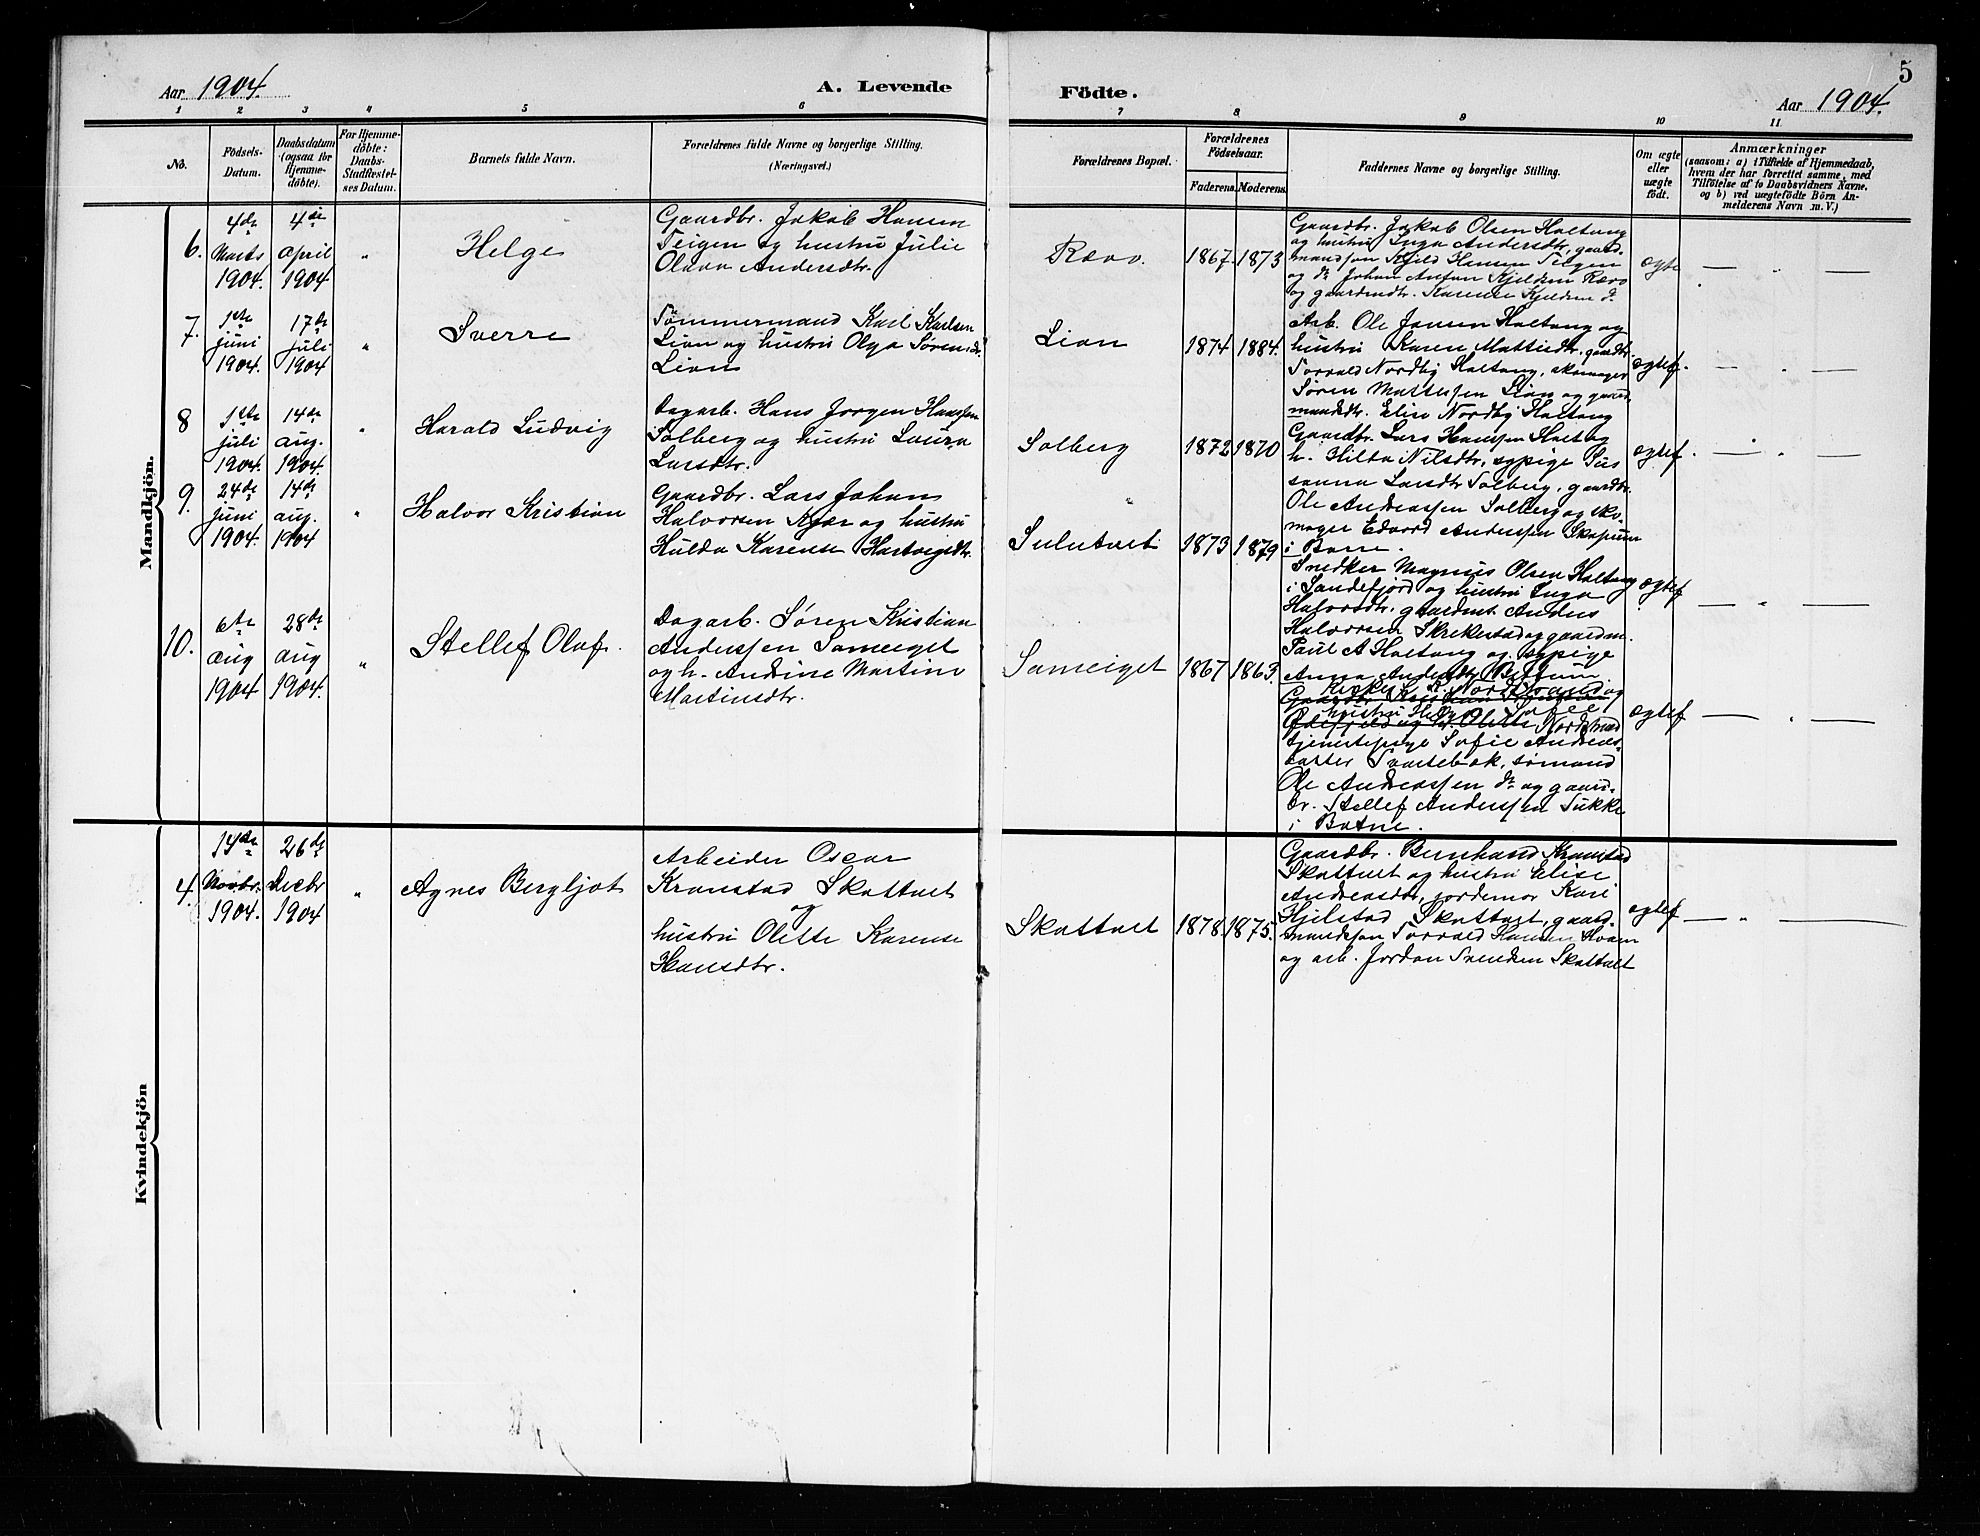 Aar 1904.
A. Levende
Födte.
Aar 1904.
5
1
2
3
4
5
6
7
8
9
10
11
No.
Födsels-
Datum.
Daabsdatum
(ogsaa for
Hjemme-
döbte).
For Hjemme-
döbte:
Daabs-
Stadfæstel-
ses Datum.
Barnets fulde Navn.
Forældrenes fulde Navne og borgerlige Stilling.
(Næringsvei.)
Forældrenes Bopæl.
Forældrenes
Födselsaar.
Faderens.
Moderens.
Faddernes Navne og borgerlige Stilling.
Om ægte
eller
uægte
födt.
Anmærkninger
(saasom: a) i Tilfælde af Hjemmedaab,
hvem der har forrettet samme, med
Tilföielse af to Daabsvidners Navne,
og b) ved uægtefödte Börn An-
melderens Navn m. V.)
Mandkjön.
6.
4de
Marts
1904.
4de
april
1904
"
Helge
Gaardbr. Jakob Hansen
Teigen og hustru Julie
Olava Andersdtr.
Rævo.
1867.
1873
Gaardbr. Jakob Olsen Holtung
og hustru Inga Andersdtr, gaard-
mandssøn Kjeld Hansen Teigen
og do Johan Anton Kjeldsen Rævo
og gaardmdtr. Karense Kjeldsen do
ægte
7.
1ste
juni
1904.
17de
juli
1904
"
Sverre
Tømmermand Karl Karlsen
Lian og hustru Olga Sørensdr.
Lian
Lian
1874
1884.
Arb. Ole Jansen Holtung og
hustru Karen Mattisdtr. gaardbr.
Torvald Nordby Holtung, skomager
Søren Mattissen Lian og gaard-
mandsdtr. Elise Nordby Holtung
ægtef.
8
1ste
juli
1904.
14de
aug.
1904.
"
Harald Ludvig
Dagarb. Hans Jørgen Hanssen
Solberg og hustru Laura
Larsdtr.
Solberg
1872
1870
Gaardbr. Lars Hanssen Holt og
h. Hilda Nilsdtr, sypige Sus
sanna Larsdtr Solberg, gaardbr.
Ole Andreassen Solberg og sko-
mager Edvard Anderssen Skapum
i Borre.
ægtef.
9.
24de
juni
1904.
14de
aug.
1904
"
Halvor Kristian
Gaardbr. Lars Johan
Halvorsen Kjær og hustru
Hulda Karense Hartvigsdtr.
Sulutvet
1873
1879
Snedker Magnus Olsen Holtung
i Sandefjord og hustru Inga
Halvorsdtr. gaardmt. Anders
Halvorsen Skrekestad og gaardm.
Paul A Holtung og sypige
Anna Andersdtr
ægtef
10.
6te
aug
1904
28de
aug
1904.
"
Stellef Olaf.
Dagarb. Søren Kristian
Anderssen Sameiget
og h. Andrine Martine
Martinsdtr.
Sameiget
1867
1863.
Nordstrand og
hustru
tjenestepige Sofie Andreas-
datter Svartebæk, sømand
Ole Andreassen do og gaard-
br. Stellef Anderssen Sukke
i Botne.
ægtef
Kvindekjön
4.
14de
Novbr.
1904.
26de
Decbr
1904
"
Agnes Bergljot
Arbeider Oscar
Kranstad Skattvet
og
hustru Olette Karense
Hansdtr.
Skattvet
1878.
1875.
Gaardbr. Bernhand Kranstad
Skattvet og hustru Elise
Andreasdtr, jordemor Kari
Hjelstad Skattvet, gaard-
mandssøn Torvald Hansen Hvam
og arb. Jordan Svendsen Skattvet
ægtef